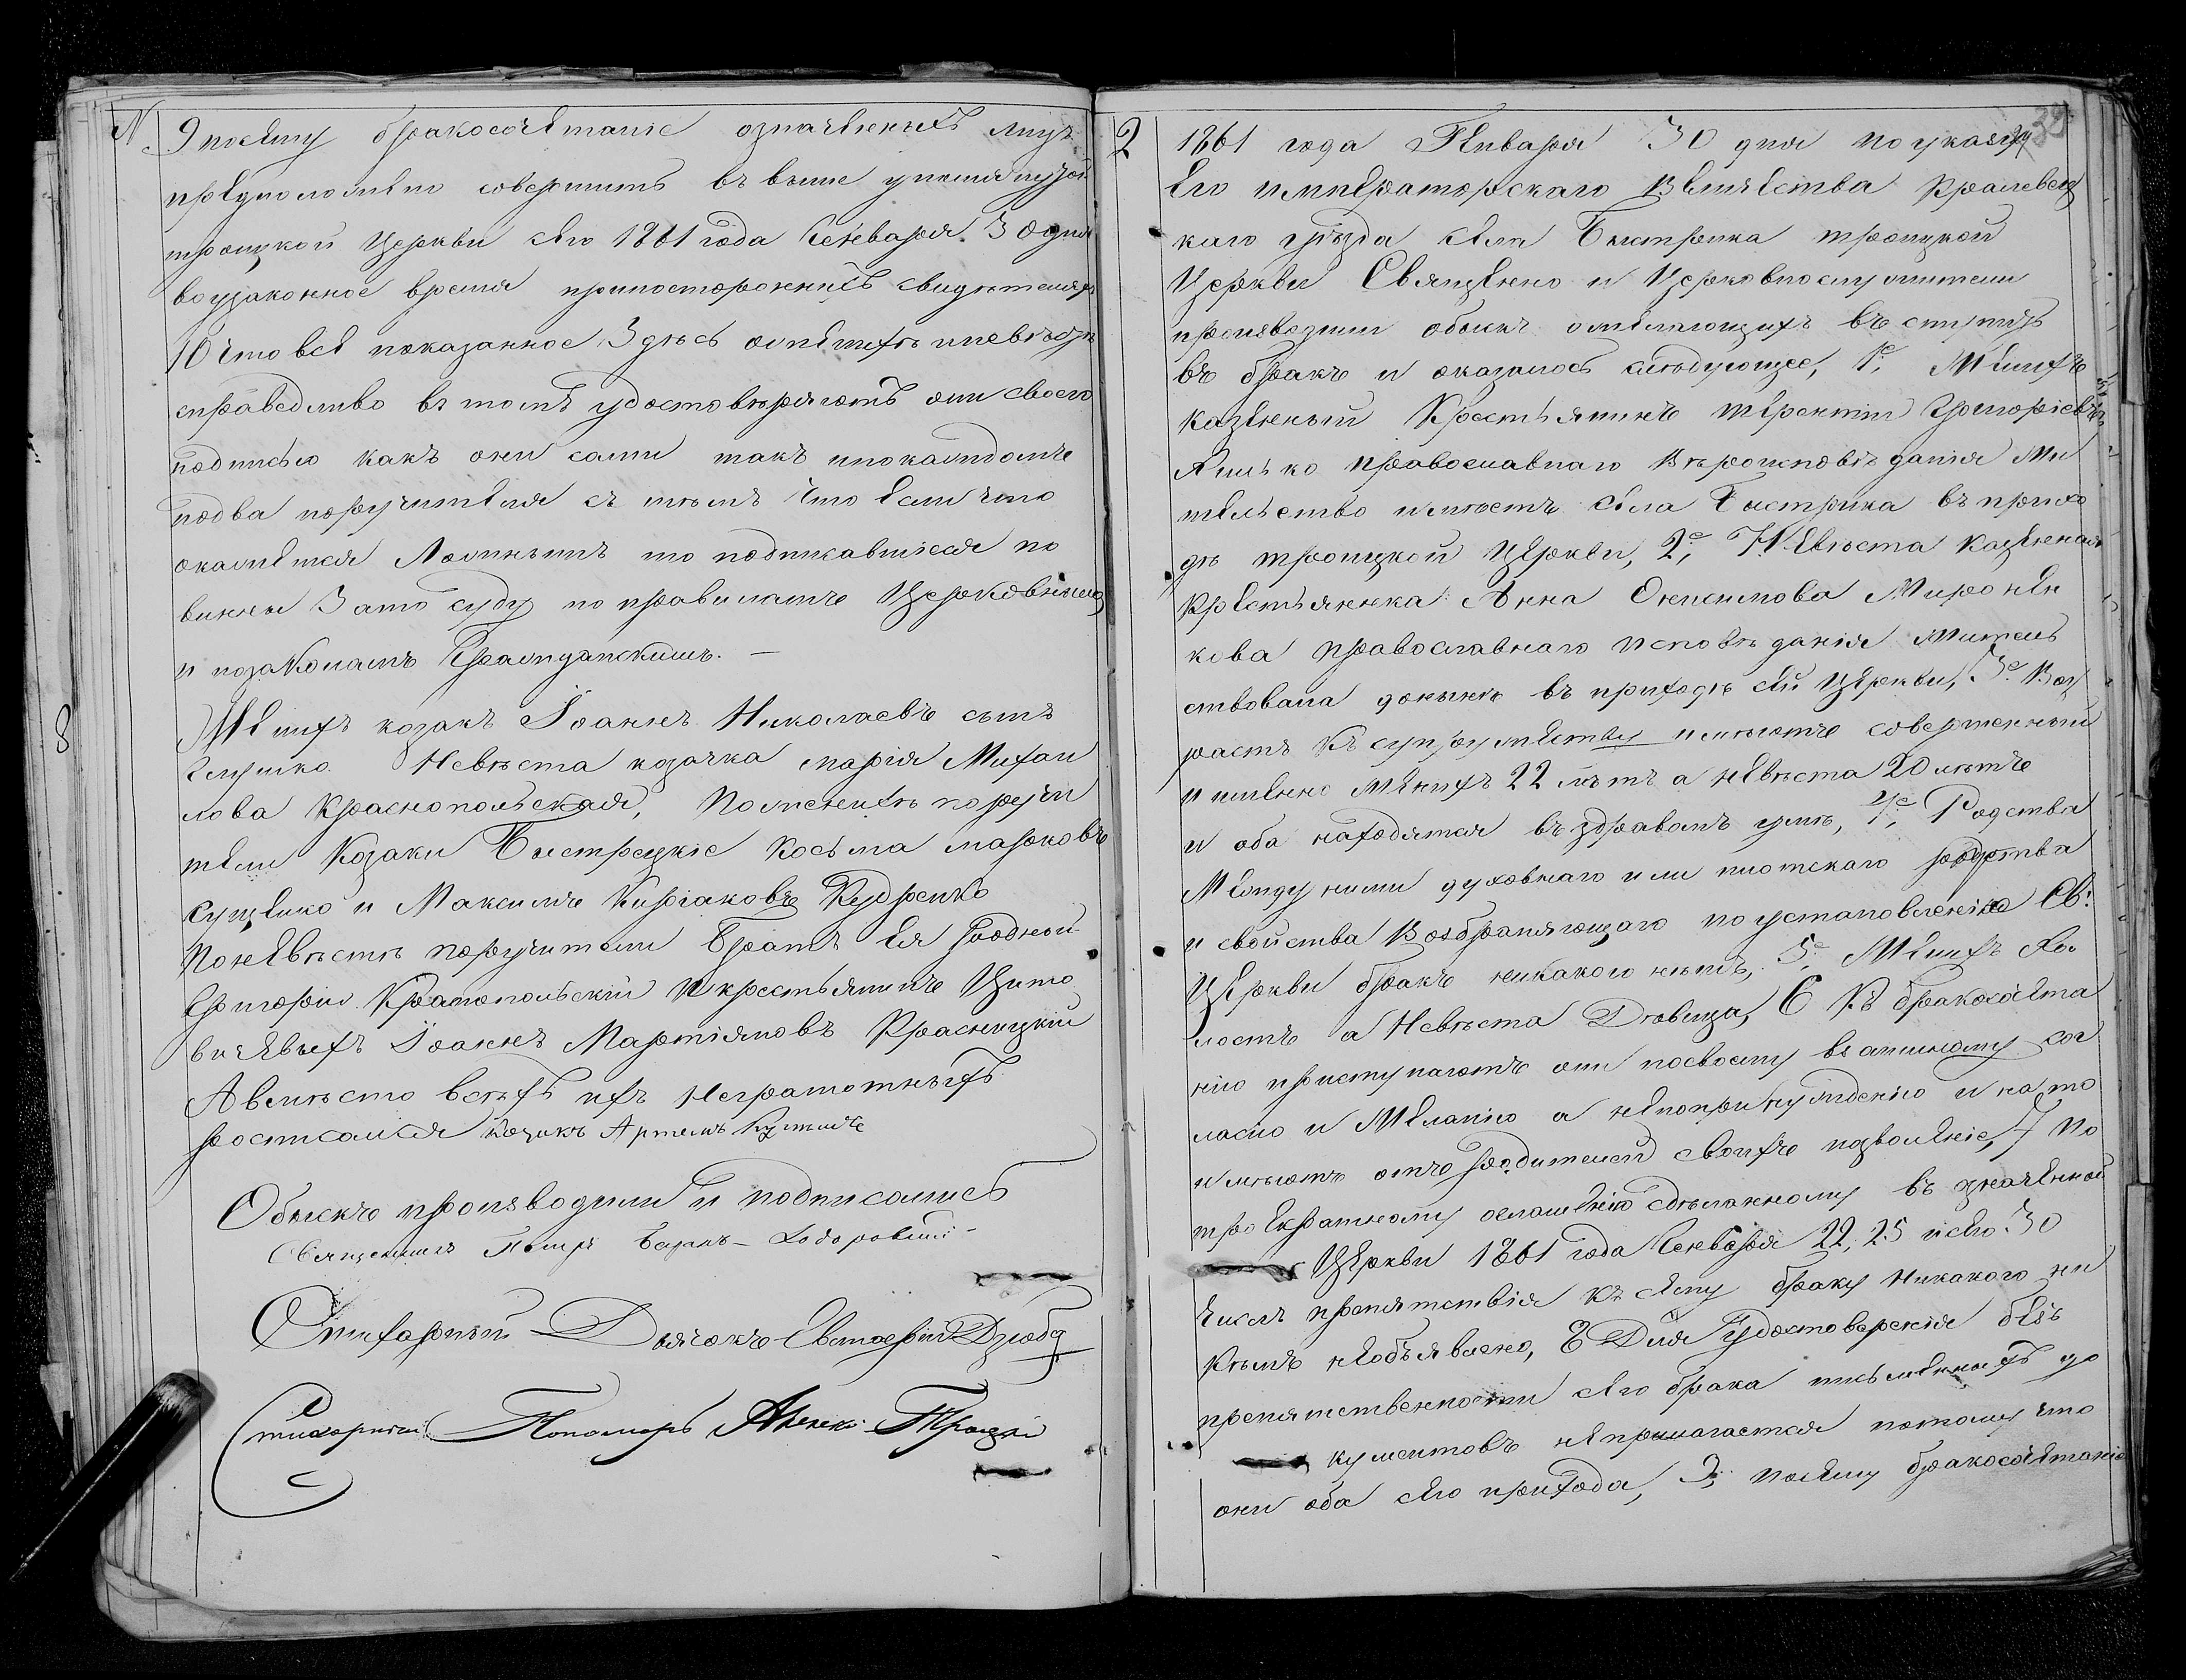 №
9 посему бракосочетание означенныхъ лицъ
предположено совершить въ выше упомянутой
троицкой Церкви сего 1861 года Генваря 30 дня
воузаконное время припостороннихъ свидетеляхъ
10 что все показанное Здесь о женихѣ иневѣстѣ
справедливо въ томъ удостовѣряютъ они своею
подписью какъ они сами такъ ипокаждомъ
подва поручителя съ тѣмъ что если что
окажется Ложнымъ то подписавшіеся по
винны Зато суду по правиламъ Церковнымъ
и позаконамъ Гражданскимъ. —
Женихъ козакъ Іоаннъ Николаевъ сынъ
Невѣста козачка марія Михаи
лова Краснопольская, По женихѣ поручи
тели Козаки Быстрецкіе Косьма марковъ
Сущенко и Максимъ Киріаковъ Кудренко
По невѣстѣ поручители Братъ ея родной
Григорій Краснопольскій и крестьянинъ Цито
вичевыхъ Іоаннъ Мартіяновъ Красницкій
А вмѣсто всѣхъ ихъ Неграмотныхъ
росписался козакъ Артемъ
Обыскъ производили и подписались
Священникъ Петръ
Стихарный Дьячокъ Евстафій Дзюба
Стихарный Пономарь Троцкій
8
2
1861 года Генваря 30 дня по указу
Его императорскаго Величества Кролевец
каго уѣзда села Быстрика троицкой
Церкви Священно и Церковнослужители
производили обыскъ о желающихъ вступить
въ бракъ и оказалось слѣдующее, 1е, Женихъ
казенный Крестьянинъ терентій Григоріевъ
православнаго вѣроисповѣданія жи
тельство имѣетъ села Быстрика въ прихо
дѣ троицкой Церкви, 2е, Невѣста казенная
крестьянка Анна Онисимова Миронен
кова православнаго исповѣданія жительс
ствовала донынѣ въ приходѣ сей Церкви, 3е Воз
растъ къ супружеству имѣютъ совершенный
и именно женихъ 22 лѣтъ а невѣста 20 лѣтъ
и оба находятся въ здравомъ умѣ, 4е, Родства
Между ними духовнаго или плотскаго родства
и свойства Возбраняющаго по установленію Св:
Церкви бракъ никакого нѣтъ, 5е, Женихъ Хо
лостъ а Невѣста Дѣвица, 6 Къ бракосочета
нію приступаютъ они посвоему взаимному сог
ласію и Желанію а непопринужденію и на то
имѣютъ отъ родителей своихъ позволеніе, 7 По
троекратному оглашенію сдѣланному въ означенной
Церкви 1861 года Генваря 22, 25 и сего 30
чиселъ препятствія къ сему браку никакого ни
кѣмъ необъявлено, 8 Для удостоверенія безъ
препятственности сего брака письменныхъ до
кументовъ неприлагается потому что
они оба сего прихода, 9, посему бракосочетаніе